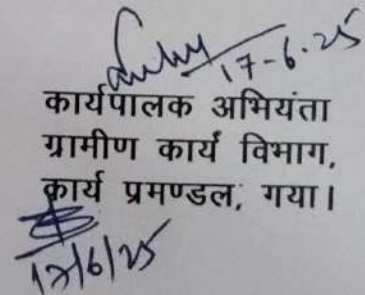 17-6-25
कार्यपालक अभियंता
ग्रामीण कार्य विभाग,
कार्य प्रमण्डल, गया।
17/6/25